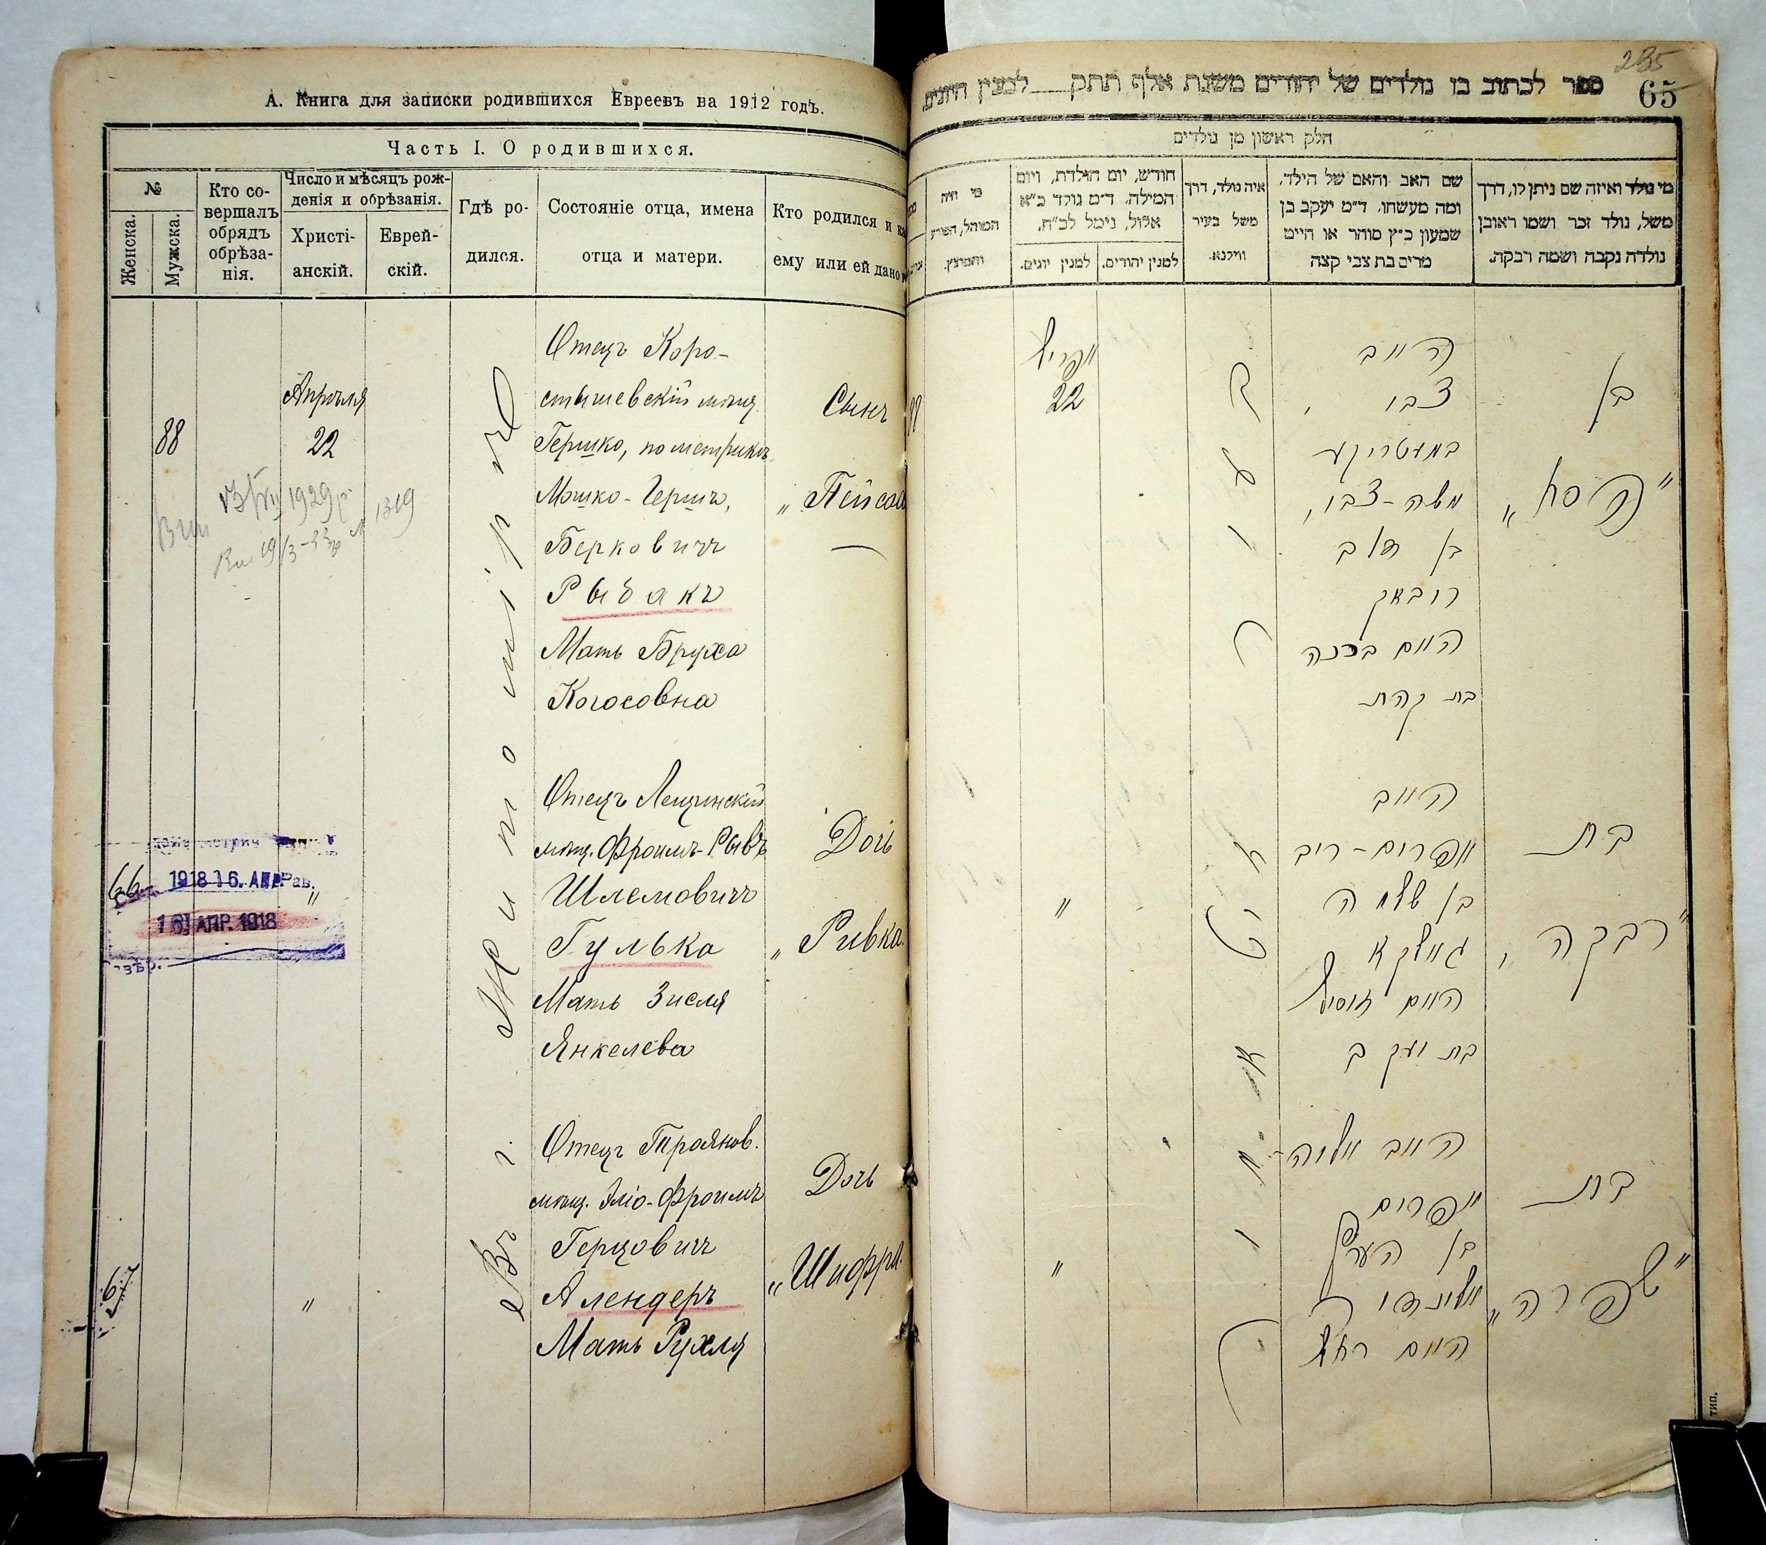 А. Книга для записки родившихся Евреевъ на 1912 годъ.
Часть I. О родившихся.
№
Женска.
Мужска.
Кто со-
вершалъ
обрядъ
обрѣза-
нія.
Число и мѣсяцъ рож-
денія и обрѣзанія.
Христі-
анскій.
Еврей-
скій.
Гдѣ ро-
дился.
Состояніе отца, имена
отца и матери.
Кто родился и ка
ему или ей дано
88
Апрѣля
22
1929
1319
Въ г. Житомірѣ
Отецъ Коро-
стышевскій мѣщ.
Гершко, по метрикѣ
Мошко-Гершъ,
Берковичъ
Рыбакъ
Мать Бруха
Когосовна
Сынъ
„Пейсах
66
1918 16. АПР. Рав.
16 АПР. 1918
"
Отецъ Лещинскій
мѣщ. Фроимъ-Рывъ
Шлемовичъ
Гулька
Мать Зисля
Янкелева
Дочь
„Ривка.
67
"
Отецъ Троянов.
мѣщ. Эліо-Фроимъ
Герцовичъ
Алендеръ
Мать Рухля
Дочь
„Шифра.
235
65
ספר לכתוב בו נולדים של יהודים משנת אלף תתק לבנין היונים
חלק ראשון מן נולדים
מי נולד ואיזה שם ניתן לו, דרך
משל, נולד זכר ושמו ראובן
נולדה נקבה ושמה רבקה.
שם האב והאם של הילד,
ומה מעשהו. ד״מ יעקב בן
שמעון כ״ץ סוחר או חייט
מרים בת צבי קצה
איה נולד, דרך
משל בעיר
ווילנא.
חודש, יום הולדת, ויום
המילה. ד״מ נולד כ״א
אלול, נימל לכ״ח.
למנין יהודים.
למנין יונים.
מי היה
המוהל, הפורע
והמוצץ.
בן
„פסח"
האב
צבי
במעטריקע
משה-צבי,
בן דוב
ריבאק
האם ברכה
בת קהת
אפריל
22
בת
„רבקה"
האב
אפרים-ריב
בן שלמה
גאולקא
האם זיסיל
בת יעקב
"
בת
„שפרה"
האב אליה
אפרים
בן הערץ
אלינדיר
האם רחל
"
тип.